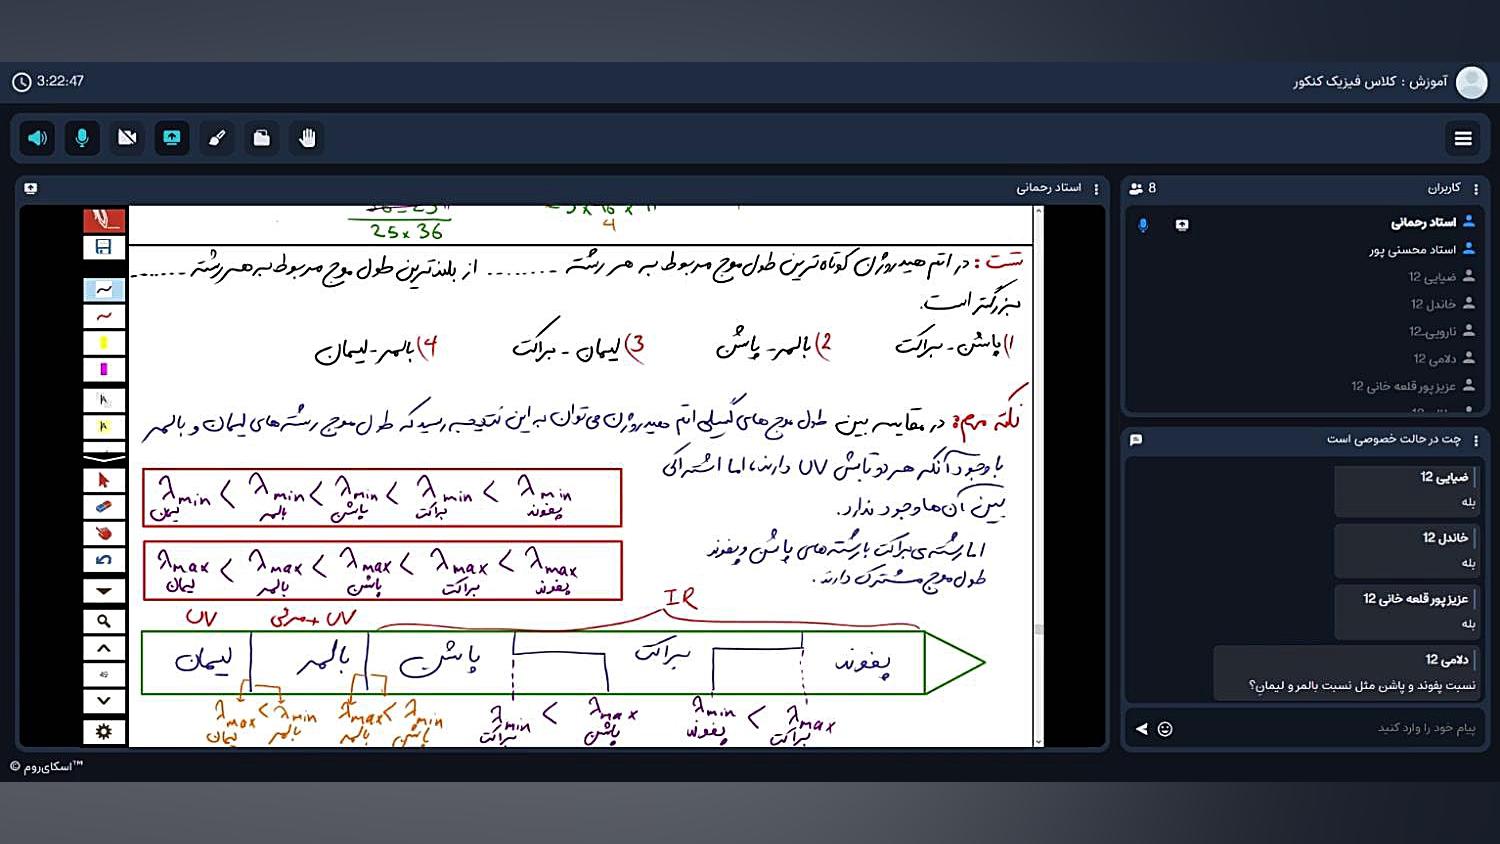 3:22:47
آموزش : کلاس فیزیک کنکور
استاد رحمانی
25×36
4
تست : در اتم هیدروژن کوتاه‌ترین طول موج مربوط به هر رشته ........ از بلندترین طول موج مربوط به هر رشته ........
بزرگتر است.
1) پاشن - براکت
2) بالمر - پاشن
3) لیمان - براکت
4) بالمر - لیمان
نکته مهم : در مقایسه بین طول موج‌های گسیلی اتم هیدروژن می‌توان به این نتیجه رسید که طول موج رشته‌های لیمان و بالمر
با وجود آنکه هر دو تابش UV دارند، اما اشتراکی
بین آن‌ها وجود ندارد.
اما رشته‌ی براکت با رشته‌های پاشن و پفوند
طول موج مشترک دارند.
λmin < λmin < λmin < λmin < λmin
لیمان بالمر پاشن براکت پفوند
λmax < λmax < λmax < λmax < λmax
لیمان بالمر پاشن براکت پفوند
UV
مرئی + UV
IR
لیمان
بالمر
پاشن
براکت
پفوند
λmax < λmin
لیمان بالمر
λmax < λmin
بالمر پاشن
λmin < λmax
براکت پاشن
λmin < λmax
پفوند براکت
49
کاربران
8
استاد رحمانی
استاد محسنی پور
ضیایی 12
خاندل 12
نارویی_12
دلامی 12
عزیزپور قلعه خانی 12
چت در حالت خصوصی است
ضیایی 12
بله
خاندل 12
بله
عزیزپور قلعه خانی 12
بله
دلامی 12
نسبت پفوند و پاشن مثل نسبت بالمر و لیمان؟
پیام خود را وارد کنید
اسکای‌روم™ ©